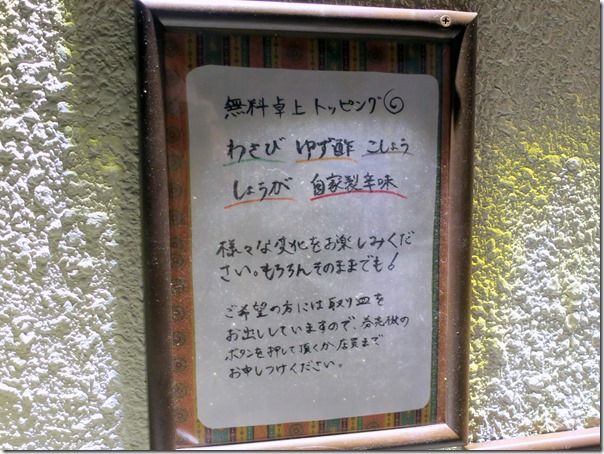 無料卓上トッピング
わさび ゆず酢 こしょう
しょうが 自家製辛味
様々な変化をお楽しみくだ
さい。もちろんそのままでも！
ご希望の方には取り皿を
お出ししていますので、券売機の
ボタンを押して頂くか店員まで
お申しつけください。